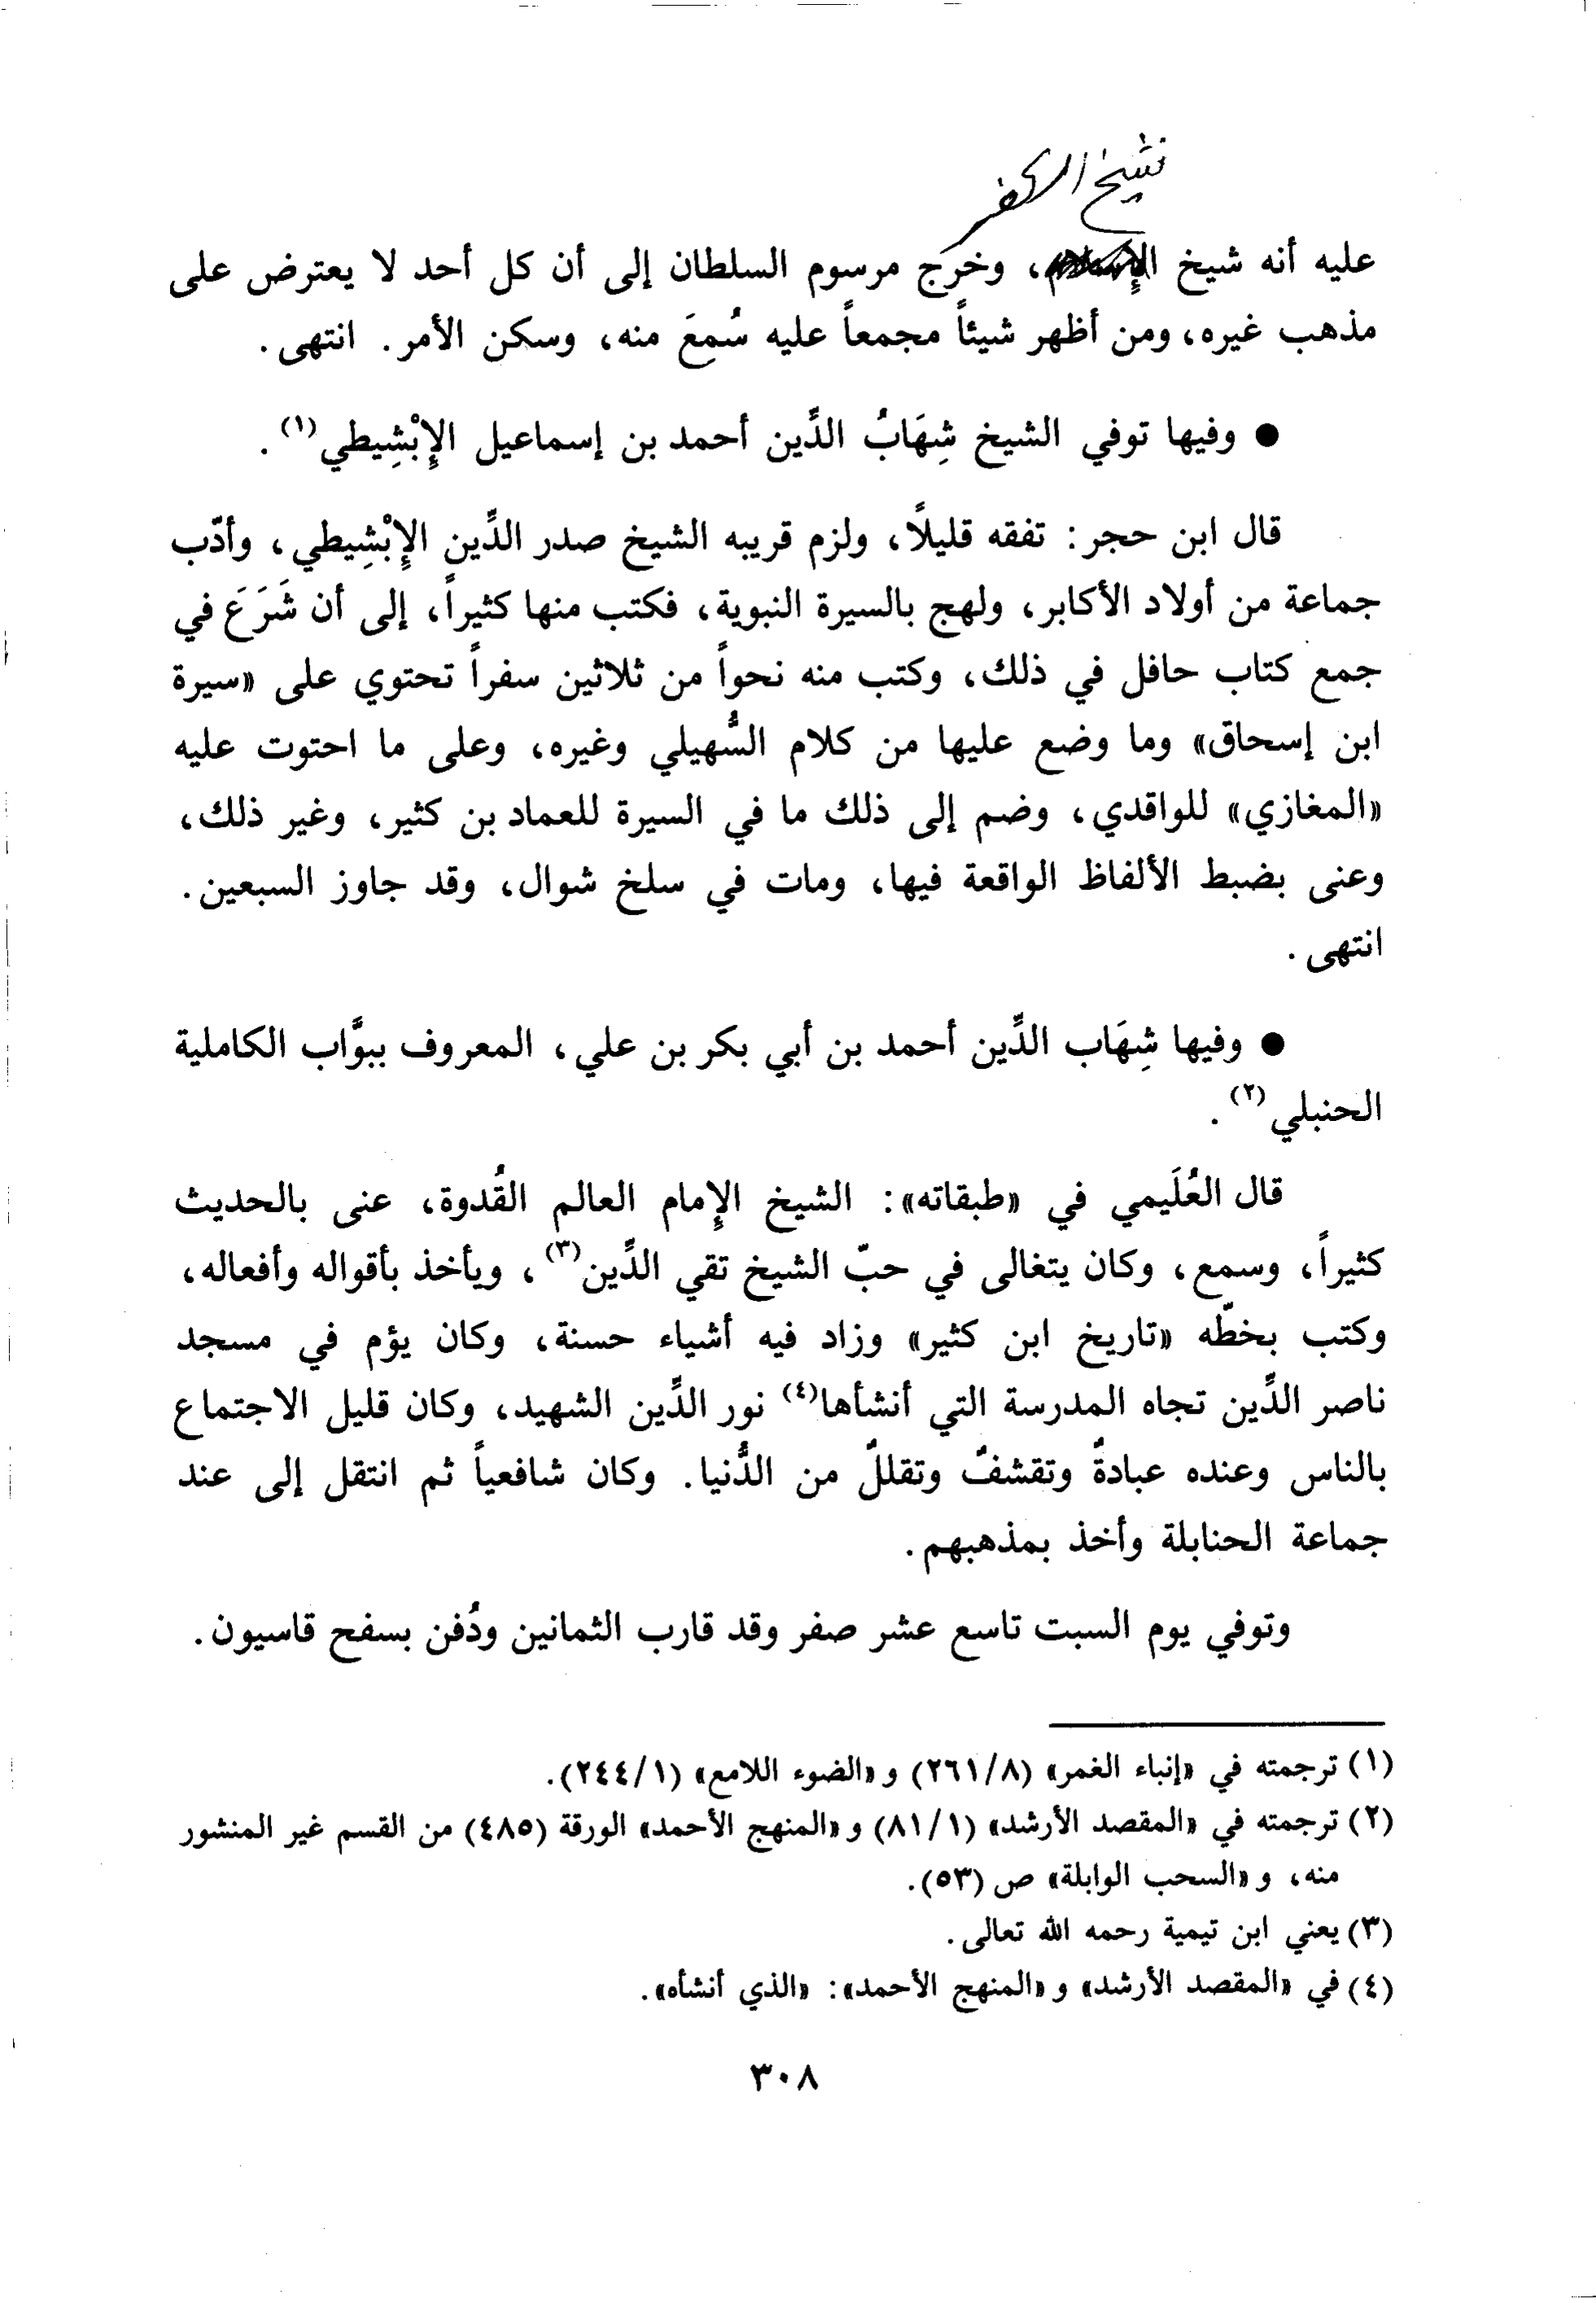 شيخ الكفر
عليه أنه شيخ الإسلام، وخرج مرسوم السلطان إلى أن كل أحد لا يعترض على
مذهب غيره، ومن أظهر شيئاً مجمعاً عليه سُمعَ منه، وسكن الأمر. انتهى.
● وفيها توفي الشيخ شِهَابُ الدِّين أحمد بن إسماعيل الإِبْشِيطي(١).
قال ابن حجر: تفقه قليلاً، ولزم قريبه الشيخ صدر الدِّين الإِبْشِيطي، وأدّب
جماعة من أولاد الأكابر، ولهج بالسيرة النبوية، فكتب منها كثيراً، إلى أن شَرَعَ في
جمع كتاب حافل في ذلك، وكتب منه نحواً من ثلاثين سفراً تحتوي على «سيرة
ابن إسحاق» وما وضع عليها من كلام السُّهيلي وغيره، وعلى ما احتوت عليه
«المغازي» للواقدي، وضم إلى ذلك ما في السيرة للعماد بن كثير، وغير ذلك،
وعنى بضبط الألفاظ الواقعة فيها، ومات في سلخ شوال، وقد جاوز السبعين.
انتهى.
● وفيها شِهَاب الدِّين أحمد بن أبي بكر بن علي، المعروف ببوَّاب الكاملية
الحنبلي(٢).
قال العُلَيمي في «طبقاته»: الشيخ الإِمام العالم القُدوة، عنى بالحديث
كثيراً، وسمع، وكان يتغالى في حبّ الشيخ تقي الدِّين(٣)، ويأخذ بأقواله وأفعاله،
وكتب بخطّه «تاريخ ابن كثير» وزاد فيه أشياء حسنة، وكان يؤم في مسجد
ناصر الدِّين تجاه المدرسة التي أنشأها(٤) نور الدِّين الشهيد، وكان قليل الاجتماع
بالناس وعنده عبادةٌ وتقشفٌ وتقللٌ من الدُّنيا. وكان شافعياً ثم انتقل إلى عند
جماعة الحنابلة وأخذ بمذهبهم.
وتوفي يوم السبت تاسع عشر صفر وقد قارب الثمانين ودُفن بسفح قاسيون.
(١) ترجمته في «إنباء الغمر» (٢٦١/٨) و«الضوء اللامع» (٢٤٤/١).
(٢) ترجمته في «المقصد الأرشد» (٨١/١) و«المنهج الأحمد» الورقة (٤٨٥) من القسم غير المنشور
منه، و«السحب الوابلة» ص (٥٣).
(٣) يعني ابن تيمية رحمه الله تعالى.
(٤) في «المقصد الأرشد» و«المنهج الأحمد»: «الذي أنشأه».
٣٠٨